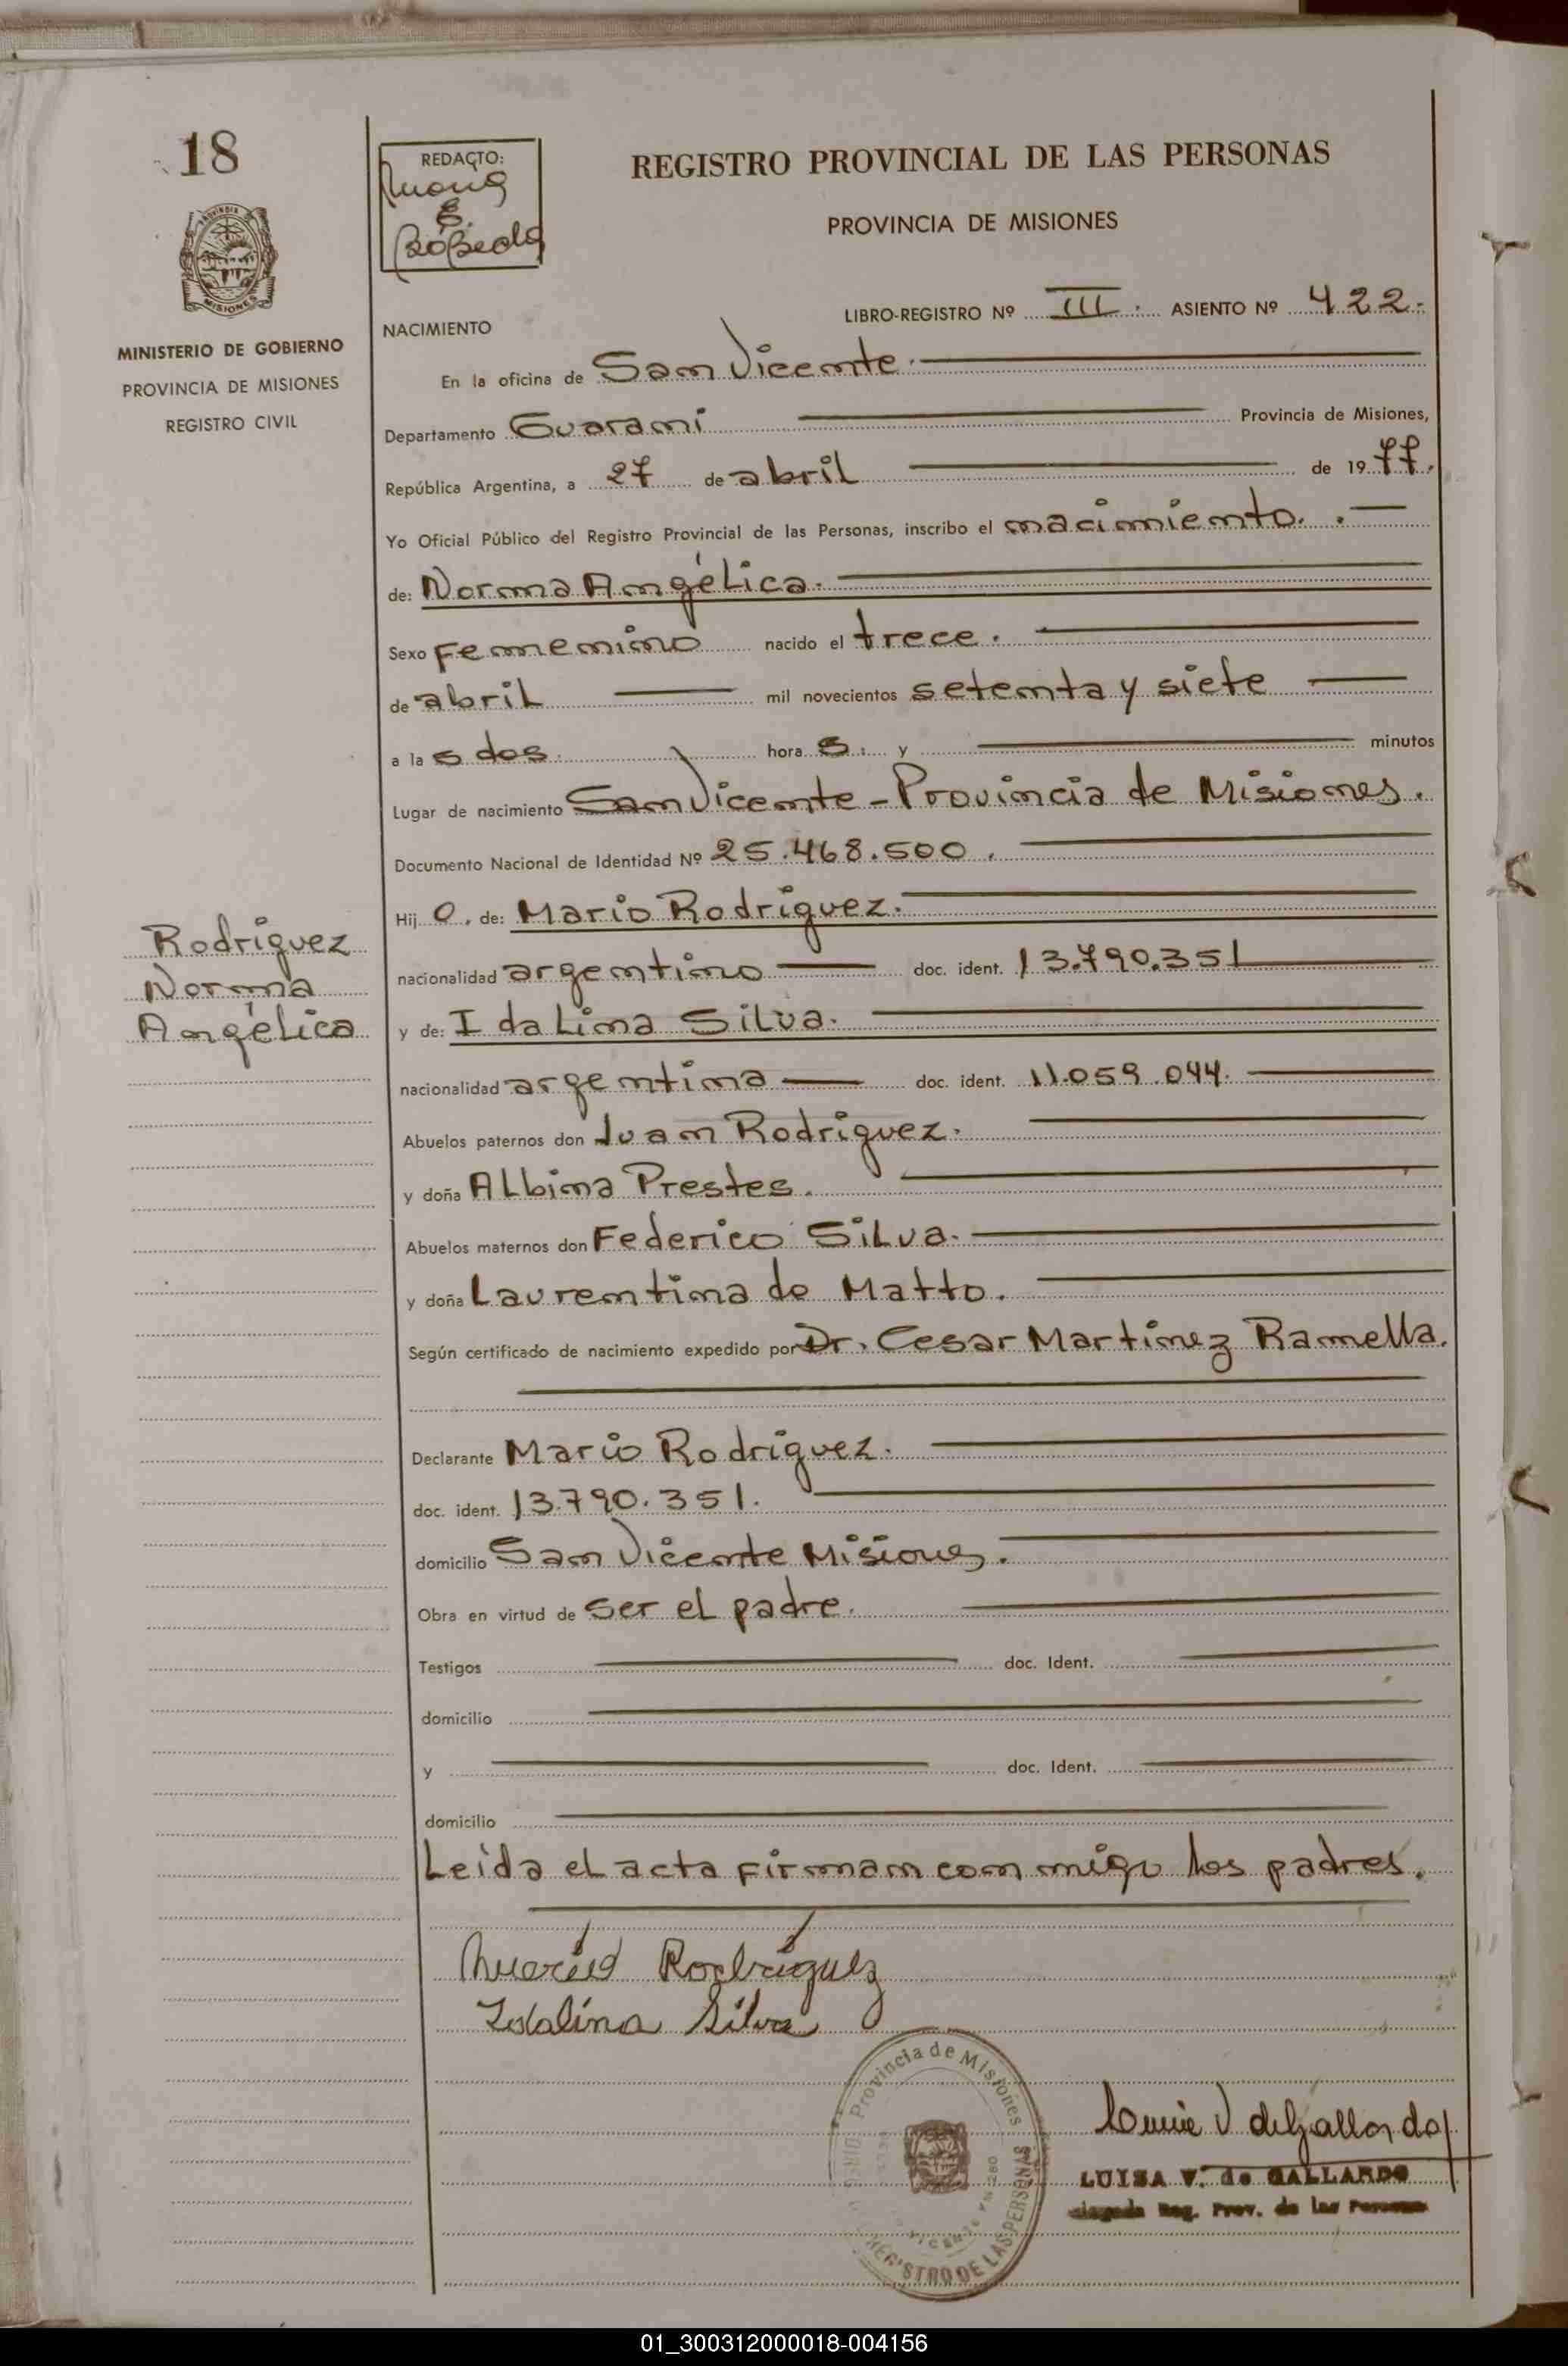 18
REDACTO:
E.
REGISTRO PROVINCIAL DE LAS PERSONAS
PROVINCIA DE MISIONES
PROVINCIA
MISIONES
MINISTERIO DE GOBIERNO
PROVINCIA DE MISIONES
REGISTRO CIVIL
LIBRO-REGISTRO Nº III. ASIENTO Nº 422.
NACIMIENTO
En la oficina de San Vicente.
Departamento Guaraní Provincia de Misiones,
República Argentina, a 27 de abril de 1977.
Yo Oficial Público del Registro Provincial de las Personas, inscribo el nacimiento.
de: Norma Angélica.
Sexo Femenino nacido el trece.
de abril mil novecientos setenta y siete
a la s dos. hora s. y minutos
Lugar de nacimiento San Vicente - Provincia de Misiones.
Documento Nacional de Identidad Nº 25.468.500.
Hij o. de: Mario Rodríguez.
nacionalidad argentino doc. ident. 13.790.351
y de: Idalina Silva.
nacionalidad argentina doc. ident. 11.059.044.
Rodríguez
Norma
Angélica
Abuelos paternos don Juan Rodríguez.
y doña Albina Prestes.
Abuelos maternos don Federico Silva.
y doña Laurentina de Matto.
Según certificado de nacimiento expedido por Dr. Cesar Martínez Ramella.
Declarante Mario Rodríguez.
doc. ident. 13.790.351.
domicilio San Vicente Misiones.
Obra en virtud de ser el padre.
Testigos doc. Ident.
domicilio
y doc. Ident.
domicilio
Leída el acta firman conmigo los padres.
Mario Rodríguez
Idalina Silva
Provincia de Misiones
REGISTRO DE LAS PERSONAS
V. de Gallardo
LUISA V. de GALLARDO
Reg. Prov. de las Personas
01_300312000018-004156